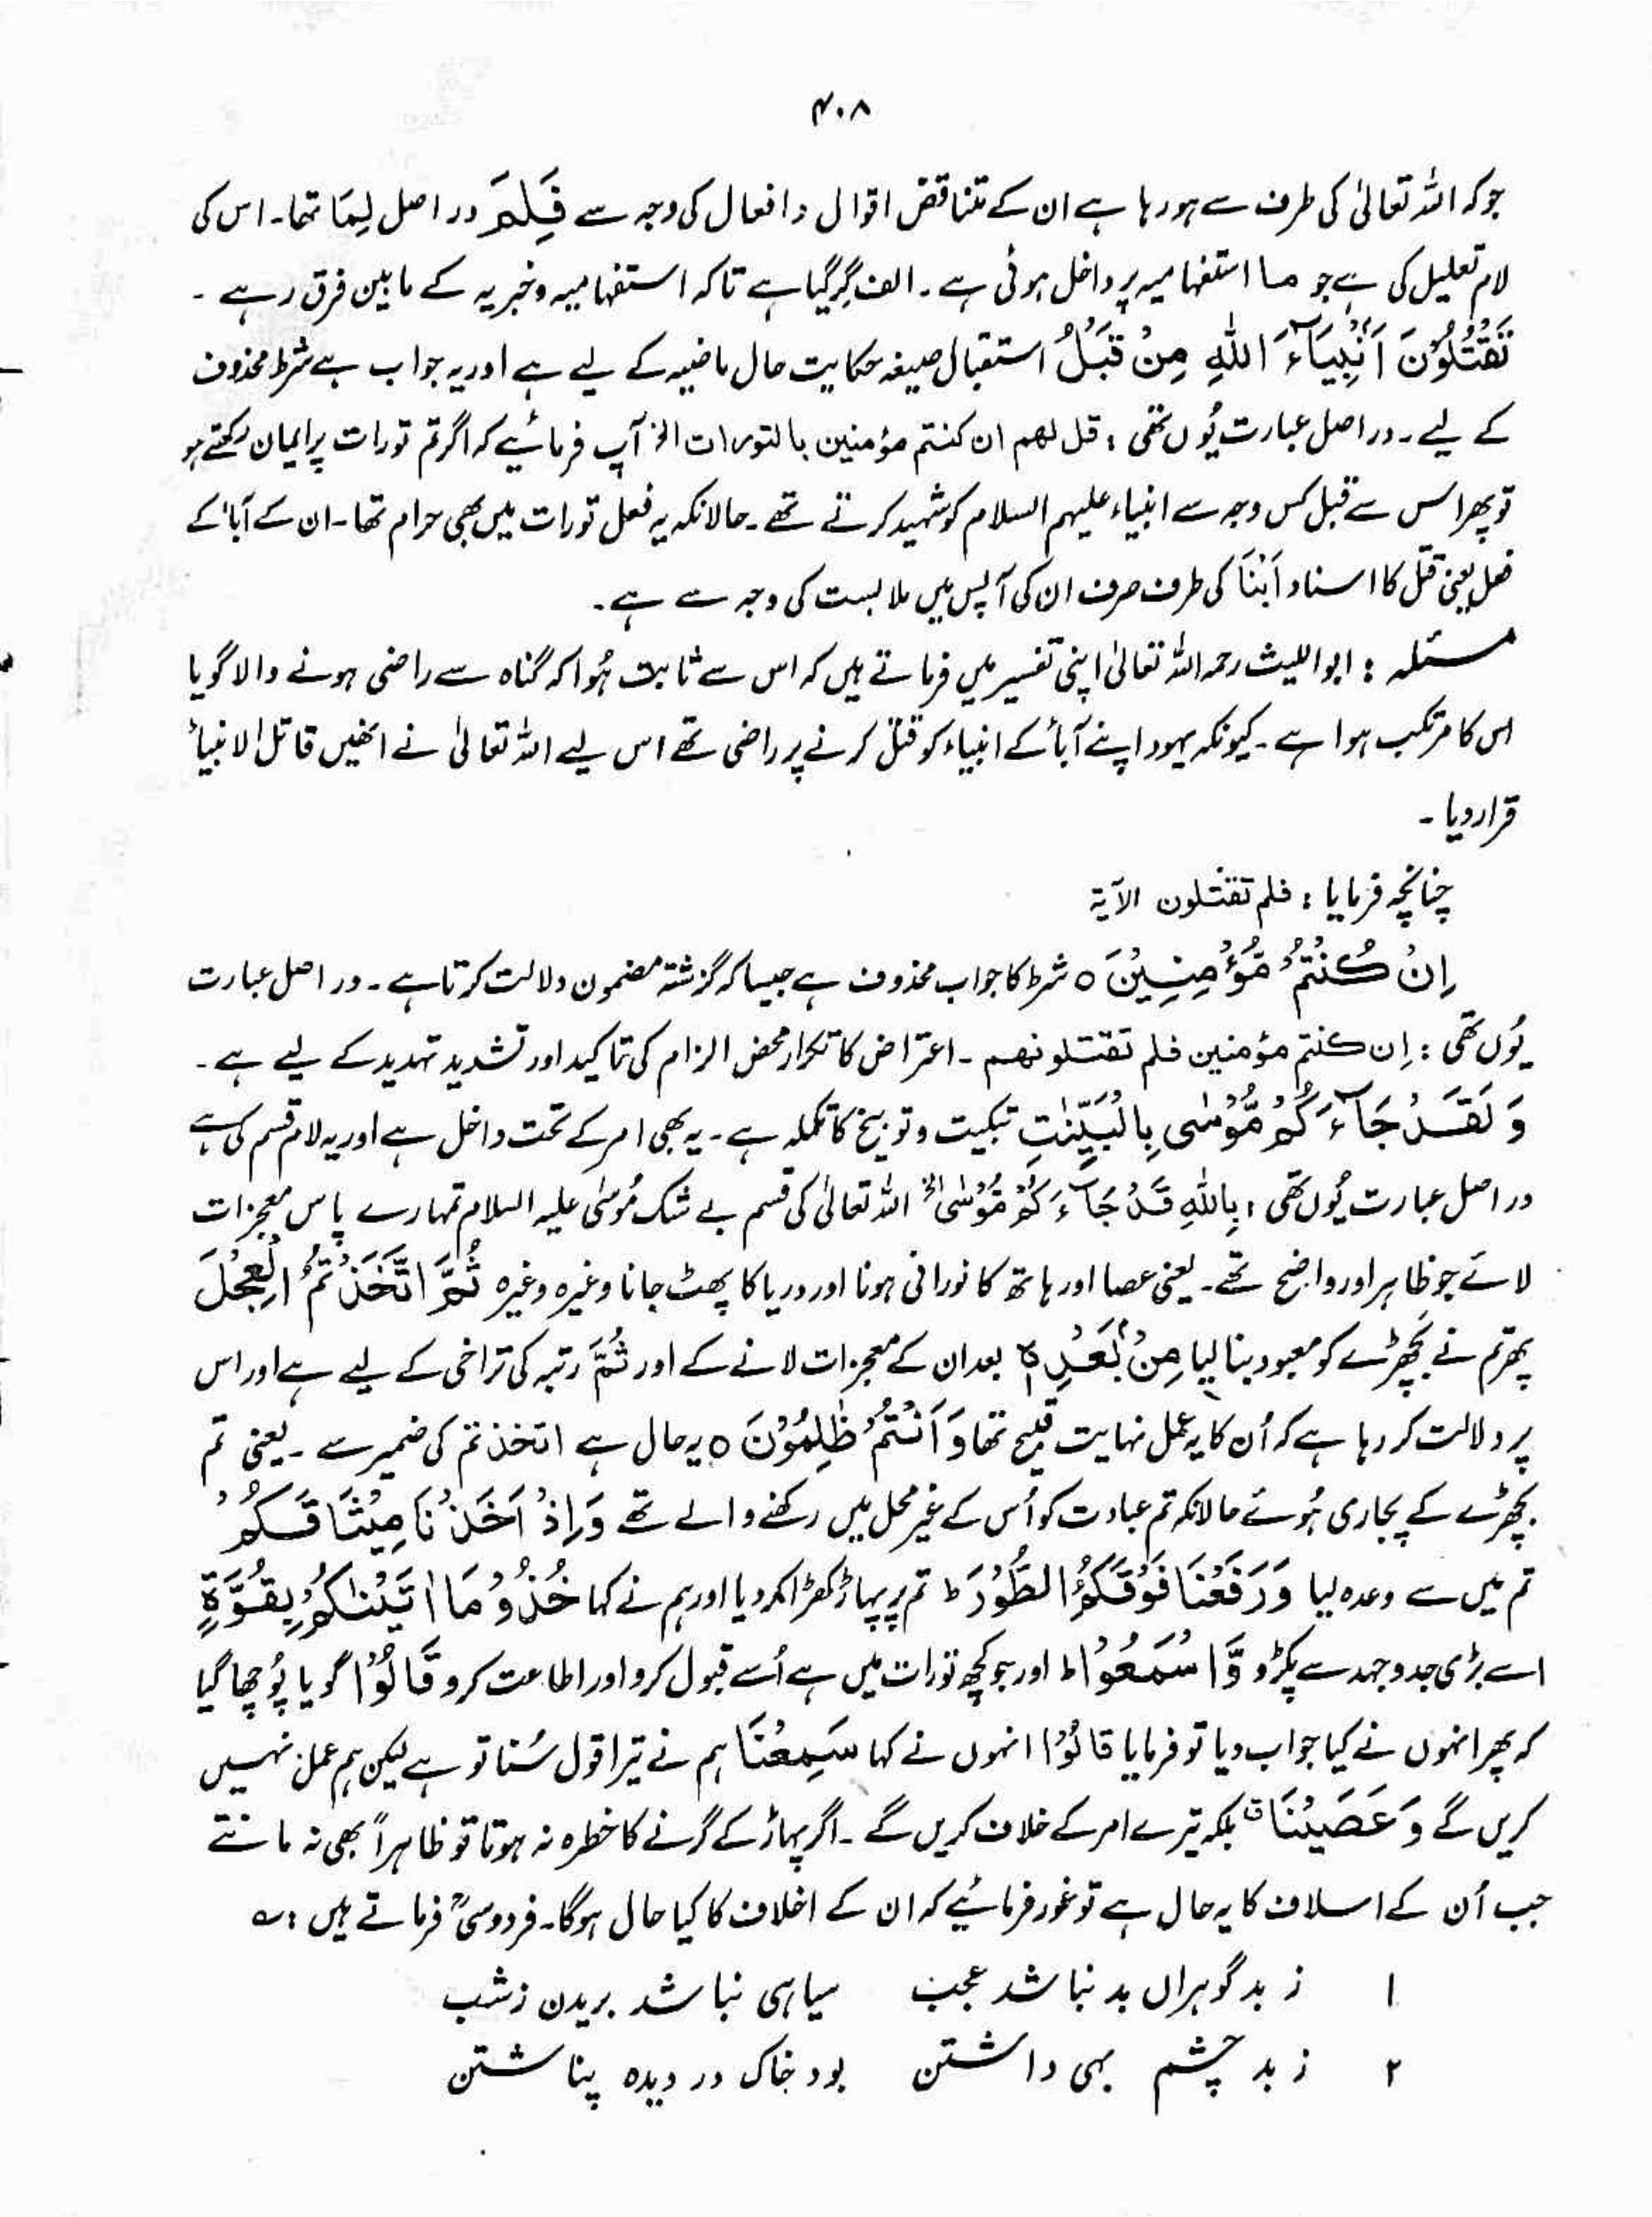 ۴۰۸
جو کہ اللہ تعالیٰ کی طرف سے ہو رہا ہے ان کے متناقض اقوال و افعال کی وجہ سے فَلِمَ در اصل لِیمَا تھا۔ اس کی
لام تعلیل کی ہے جو ما استفہامیہ پر داخل ہوئی ہے۔ الف گِر گیا ہے تاکہ استفہامیہ و خبریہ کے مابین فرق رہے۔
تَقْتُلُوْنَ اَنْۢبِیَآءَ اللّٰہِ مِنْ قَبْلُ استقبال صیغہ حکایت حال ماضیہ کے لیے ہے اور یہ جواب ہے شرط محذوف
کے لیے۔ در اصل عبارت یُوں تھی : قل لھم ان کنتم مؤمنین بالتورات الخ آپ فرمائیے کہ اگر تم تورات پر ایمان رکھتے ہو
تو پھر اس سے قبل کس وجہ سے انبیاء علیہم السلام کو شہید کرتے تھے۔ حالانکہ یہ فعل تورات میں بھی حرام تھا۔ ان کے آباء کے
فعل یعنی قتل کا اسناد اَبْنَاَ کی طرف صرف ان کی آپس میں ملابست کی وجہ سے ہے۔
مسئلہ : ابو اللیث رحمہ اللہ تعالیٰ اپنی تفسیر میں فرماتے ہیں کہ اس سے ثابت ہُوا کہ گناہ سے راضی ہونے والا گویا
اس کا مرتکب ہوا ہے۔ کیونکہ یہود اپنے آباء کے انبیاء کو قتل کرنے پر راضی تھے اس لیے اللہ تعالیٰ نے انھیں قاتل الانبیاء
قرار دیا۔
چنانچہ فرمایا : فلم تقتلون الآیۃ
اِنْ کُنْتُمْ مُّؤْمِنِیْنَ ○ شرط کا جواب محذوف ہے جیسا کہ گزشتہ مضمون دلالت کرتا ہے۔ در اصل عبارت
یُوں تھی : اِن کنتم مؤمنین فلم تقتلونھم ۔ اعتراض کا تکرار محض الزام کی تاکید اور تشدید تہدید کے لیے ہے۔
وَ لَقَدْ جَآءَ کُمْ مُّوْسٰی بِالْبَیِّنٰتِ تبکیت و توبیخ کا تکملہ ہے۔ یہ بھی امر کے تحت داخل ہے اور یہ لام قسم کی ہے
در اصل عبارت یُوں تھی : بِاللّٰہِ قَدْ جَآءَ کُمْ مُّوْسٰی الخ اللہ تعالیٰ کی قسم بے شک مُوسٰی علیہ السلام تمہارے پاس معجزات
لائے جو ظاہر اور واضح تھے۔ یعنی عصا اور ہاتھ کا نورانی ہونا اور دریا کا پھٹ جانا وغیرہ وغیرہ ثُمَّ اتَّخَذْتُمُ الْعِجْلَ
پھر تم نے بچھڑے کو معبود بنا لیا مِنْۢ بَعْدِہٖ بعد ان کے معجزات لانے کے اور ثُمَّ رتبہ کی تراخی کے لیے ہے اور اس
پر دلالت کر رہا ہے کہ اُن کا یہ عمل نہایت قبیح تھا وَ اَنْتُمْ ظٰلِمُوْنَ ○ یہ حال ہے اتخذتم کی ضمیر سے ۔ یعنی تم
بچھڑے کے پجاری ہُوئے حالانکہ تم عبادت کو اُس کے غیر محل میں رکھنے والے تھے وَ اِذْ اَخَذْنَا مِیْثَاقَکُمْ
تم میں سے وعدہ لیا وَ رَفَعْنَا فَوْقَکُمُ الطُّوْرَ ط تم پر پہاڑ کھڑا کر دیا اور ہم نے کہا خُذُوْا مَا اٰتَیْنٰکُمْ بِقُوَّۃٍ
اسے بڑی جدوجہد سے پکڑو وَّ اسْمَعُوْا ط اور جو کچھ تورات میں ہے اُسے قبول کرو اور اطاعت کرو قَالُوْا گویا پُوچھا گیا
کہ پھر انہوں نے کیا جواب دیا تو فرمایا قَالُوْا انہوں نے کہا سَمِعْنَا ہم نے تیرا قول سُنا تو ہے لیکن ہم عمل نہیں
کریں گے وَ عَصَیْنَا ق بلکہ تیرے امر کے خلاف کریں گے ۔ اگر پہاڑ کے گرنے کا خطرہ نہ ہوتا تو ظاہراً بھی نہ مانتے
جب اُن کے اسلاف کا یہ حال ہے تو غور فرمائیے کہ ان کے اخلاف کا کیا حال ہوگا۔ فردوسیؒ فرماتے ہیں : ؎
۱ ز بد گوہراں بد نباشد عجب سیاہی نباشد بریدن زشب
۲ ز بد چشم بہی داشتن بود خاک در دیدہ پناشتن